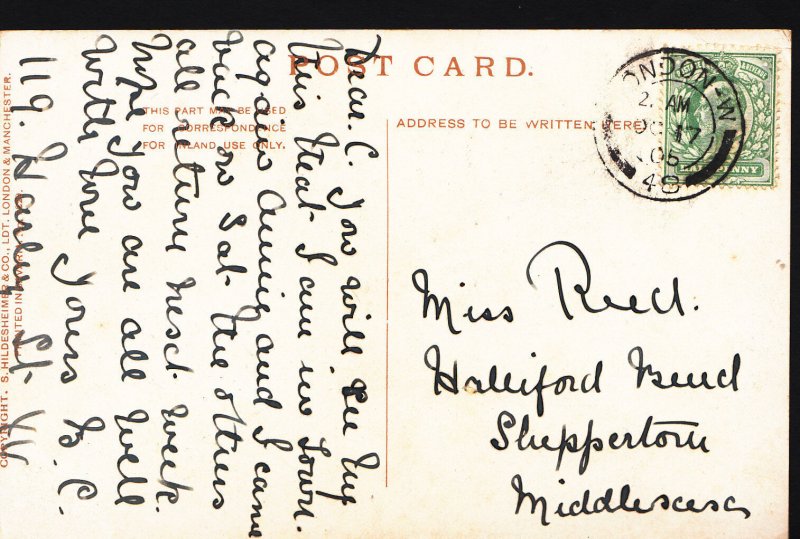 POST CARD.
THIS PART MAY BE USED
FOR CORRESPONDENCE
FOR INLAND USE ONLY.
ADDRESS TO BE WRITTEN HERE
LONDON-W
2. AM
OC 17
05
48
HALFPENNY
Dear. C. You will see by
this that I am in Town.
again and I came
back on Sat. the others
all return next week.
hope you are all well
with love Yours B. C.
119. Harley St. W
Miss Reed.
Halliford Bend
Sheppertom
Middlesesex
COPYRIGHT. S. HILDESHEIMER & CO., LDT. LONDON & MANCHESTER.
PRINTED IN